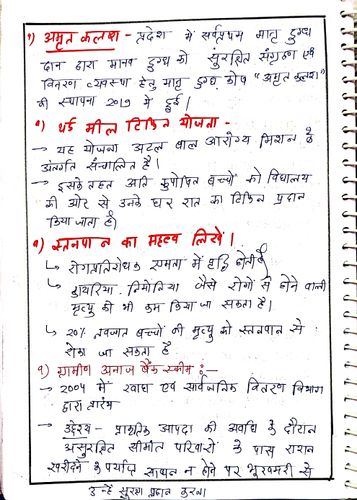 १) अमृत कलश - प्रदेश में सर्वप्रथम मातृ दुग्ध
दान द्वारा मानव दुग्ध को सुरक्षित संग्रहण एवं
वितरण व्यवस्था हेतु मातृ दुग्ध कोष "अमृत कलश"
की स्थापना 2017 में हुई।
१) थर्ड मील टिफिन योजना -
→ यह योजना अटल बाल आरोग्य मिशन के
अंतर्गत संचालित है।
→ इसके तहत अति कुपोषित बच्चों को विद्यालय
की ओर से उनके घर रात का टिफिन प्रदान
किया जाता है।
१) स्तनपान का महत्व लिखें।
↳ रोगप्रतिरोधक क्षमता में वृद्धि होती है
↳ डायरिया, निमोनिया जैसे रोगों से होने वाली
मृत्यु को भी कम किया जा सकता है।
↳ 20% नवजात बच्चों की मृत्यु को स्तनपान से
रोका जा सकता है
१) ग्रामीण अनाज बैंक स्कीम :-
→ 2004 में खाद्य एवं सार्वजनिक वितरण विभाग
द्वारा प्रारंभ
→ उद्देश्य - प्राकृतिक आपदा की अवधि के दौरान
असुरक्षित सीमांत परिवारों के पास राशन
खरीदने के पर्याप्त साधन न होने पर भूखमरी से
उन्हें सुरक्षा प्रदान करना।